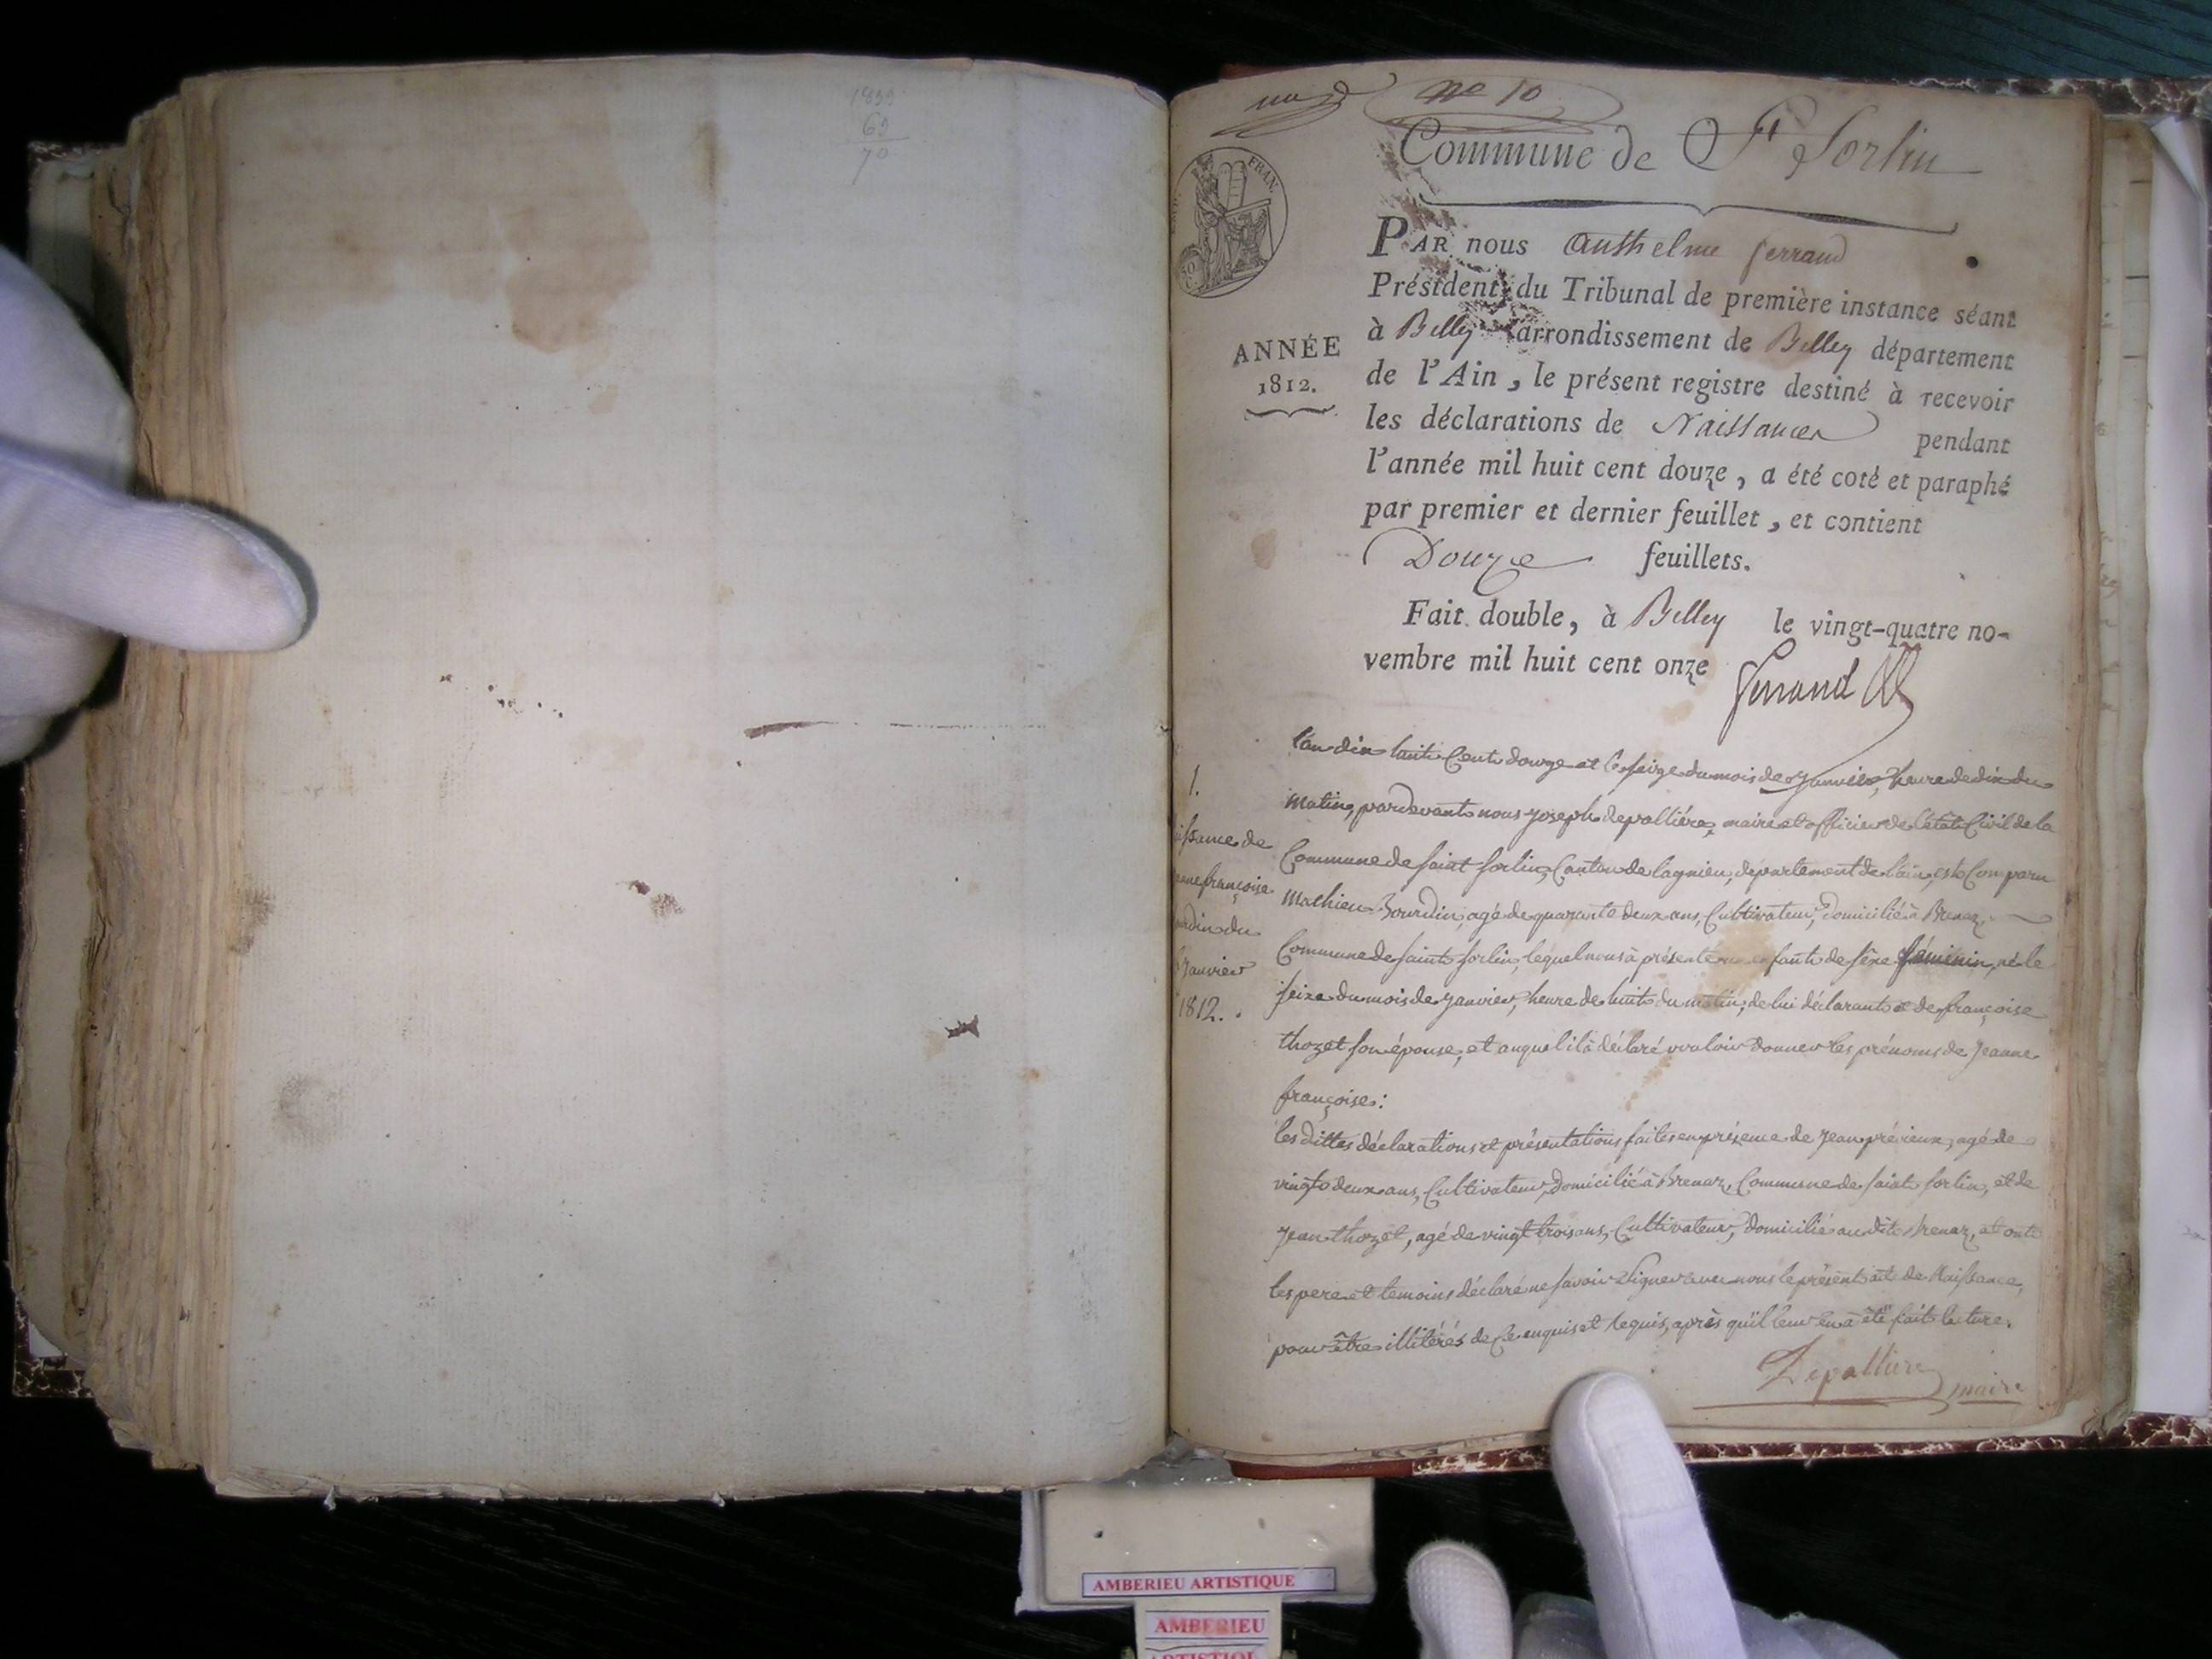 1833
63
70
nº 10
Commune de St Sorlin
FRAN.
PAR nous Anthelme ferrand
Président du Tribunal de première instance séant
à Belley arrondissement de Belley département
ANNÉE
1812.
de l'Ain, le présent registre destiné à recevoir
les déclarations de Naissances pendant
l'année mil huit cent douze, a été coté et paraphé
par premier et dernier feuillet, et contient
Douze feuillets.
Fait double, à Belley le vingt-quatre no-
vembre mil huit cent onze
ferrand
1.
issance de
anne françoise
urdin du
janvier
1812.
l'an dix huit Cent douze et le seize du mois de janvier, heure de dix du
matin, pardevant nous joseph depallière, maire et officier de l'état Civil de la
Commune de saint sorlin, Canton de lagnieu, département de l'ain, est Comparu
Mathieu Bourdin, agé de quarante deux ans, Cultivateur, domicilié à Brenaz,
Commune de saint sorlin, lequel nous à présenté un enfant de sexe féminin, né le
seize du mois de janvier, heure de huit du matin, de lui déclarant et de françoise
thozet son épouse, et auquel il à déclaré vouloir donner les prénoms de Jeanne
françoise:
les dittes déclarations et présentations faites en présence de jean prévieux, agé de
vingt deux ans, Cultivateur, domicilié à Brenaz, Commune de saint sorlin, et de
jean thozet, agé de vingt trois ans, Cultivateur, domicilié au dit Brenaz, et ont
les pere et temoins déclaré ne savoir signer avec nous le présent acte de Naissance,
pour être illitérés de Ce enquis et requis, après qu'il leur en à été fait lecture.
Depallière maire
AMBERIEU ARTISTIQUE
AMBERIEU
ARTISTIQUE